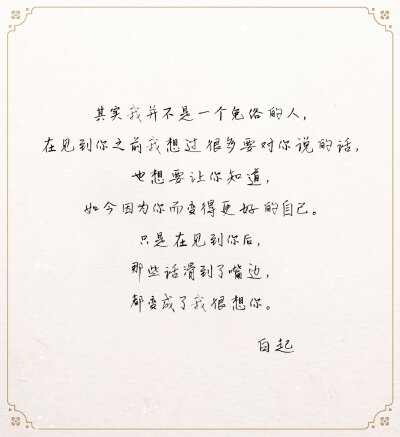 其实我并不是一个免俗的人，
在见到你之前我想过很多要对你说的话，
也想要让你知道，
如今因为你而变得更好的自己。
只是在见到你后，
那些话滑到了嘴边，
都变成了我很想你。
白起